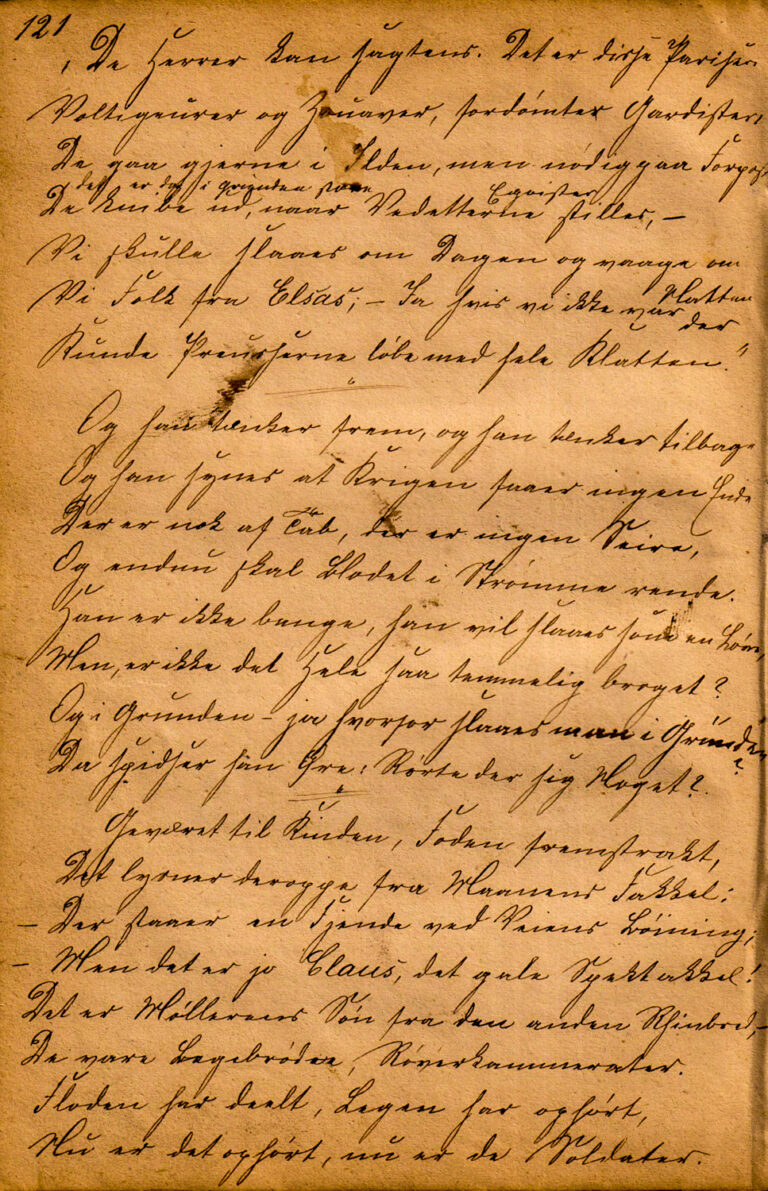 121
"De Herrer kan sagtens. Det er disse Pariser
Voltigeurer og Zouaver, fordømter Gardister,
De gaa gjerne i Ilden, men nødig gaa Forpost
det er dog i grunden store Egoister
De knibe ud, naar Vedetterne stilles, –
Vi skulle slaaes om Dagen og vaage om
Natten
Vi Folk fra Elsas; – Ja hvis vi ikke var der
Kunde Preusserne løbe med hele Klatten."
Og han tænker frem, og han tænker tilbage
Og han synes at Krigen faaer ingen Ende
Der er nok af Tab, der er ingen Seire,
Og endnu skal Blodet i Strømme rende.
Han er ikke bange, han vil slaaes som en Løve,
Men, er ikke det Hele saa temmelig broget?
Og i Grunden – ja hvorfor slaaes man i Grunden?
Da spidser han Øre: Rørte der sig Noget?
Geværet til Kinden, Foden fremstrakt,
Det lysner deroppe fra Maanens Fakkel:
– Der staaer en Fjende ved Veiens Bøining;
– Men det er jo Claus, det gale Spektakkel!
Det er Møllerens Søn fra den anden Rhinbred, –
De vare Legebrødre, Røverkammerater.
Floden har deelt, Legen har ophørt,
Nu er det ophørt, nu er de Soldater.